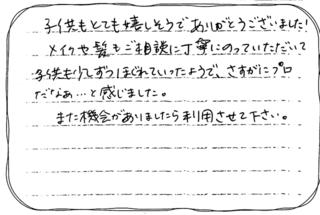 子供もとても嬉しそうでありがとうございました!
メイクや髪もご相談に丁寧にのっていただいて
子供も少しずつほぐれていったようで、さすがにプロ
だなぁ…と感じました。
また機会がありましたら利用させて下さい。